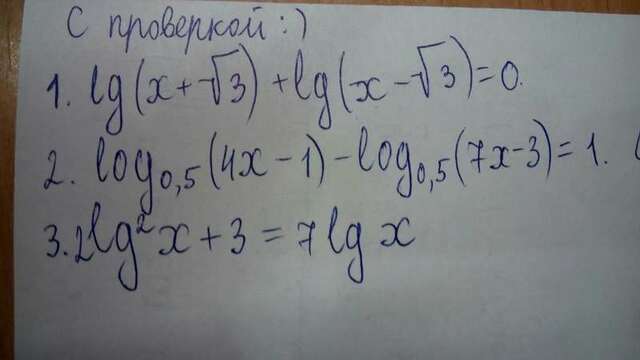 С проверкой :)
1. lg(x+√3)+lg(x-√3)=0.
2. log₀,₅(4x-1)-log₀,₅(7x-3)=1.
3. 2lg²x+3=7lg x